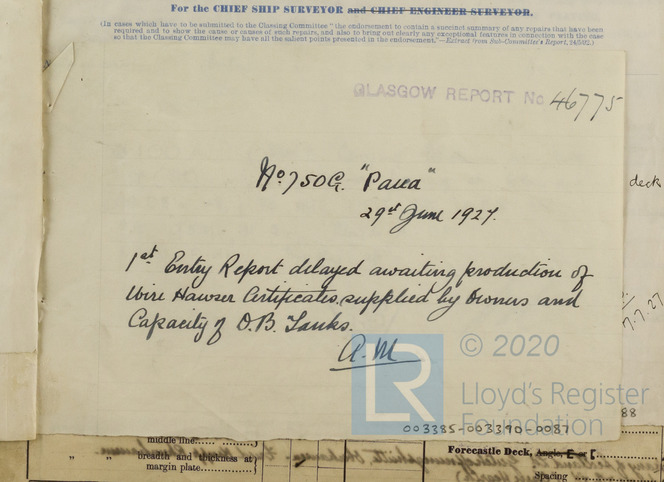 For the CHIEF SHIP SURVEYOR and CHIEF ENGINEER SURVEYOR.
(In cases which have to be submitted to the Classing Committee "the endorsement to contain a succinct summary of any repairs that have been
required and to show the cause or causes of such repairs, and also to bring out clearly any exceptional features in connection with the case
so that the Classing Committee may have all the salient points presented in the endorsement."—Extract from Sub-Committee's Report, 24/3/02.)
GLASGOW REPORT No 46775
No 750G. "Pacea"
29st June 1927.
1st Entry Report delayed awaiting production of
Wire Hawser Certificates supplied by Owners and
Capacity of D.B. Tanks.
A.M
deck
7.7.27
© 2020
LR
Lloyd's Register
Foundation
003385-003390-0087
88
middle line
" " breadth and thickness at
margin plate
Forecastle Deck, Angle, E or [
Spacing